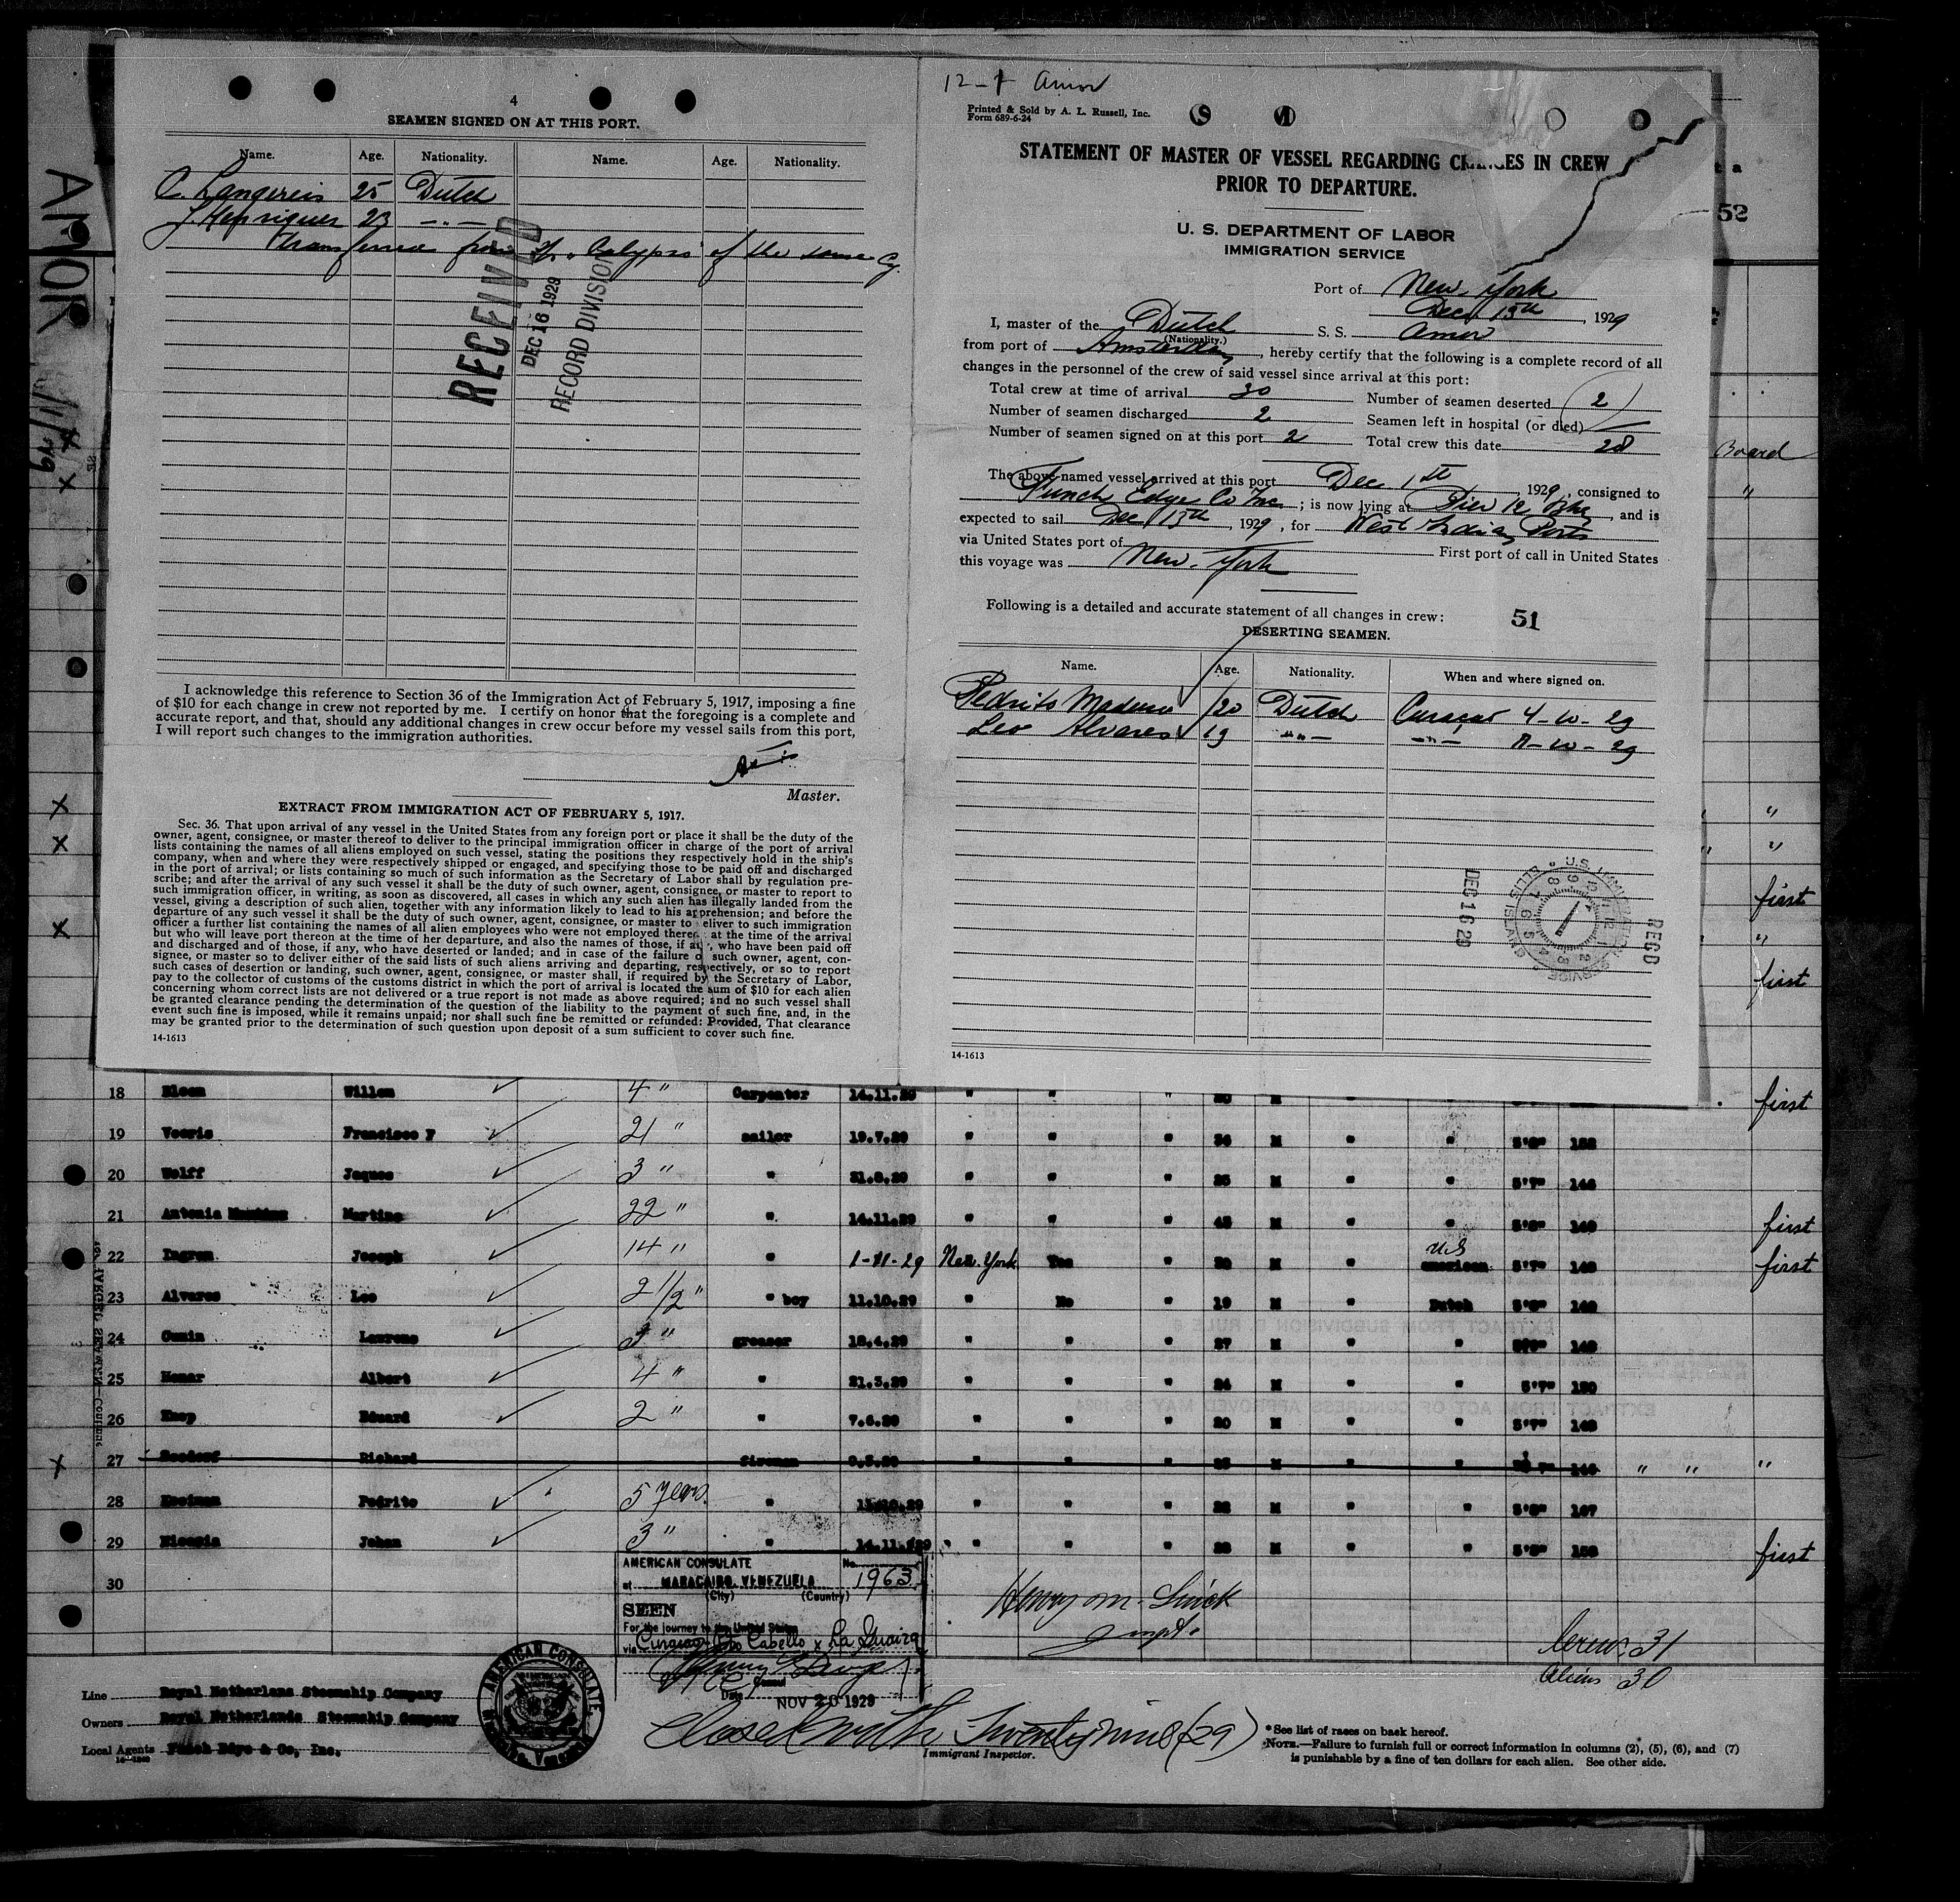 4
SEAMEN SIGNED ON AT THIS PORT.
Name. Age. Nationality. Name. Age. Nationality.
C. Langereis 25 Dutch
J. Henriquez 23 -"-
transferred from Str. Calypso of the same Cy.
RECEIVED
DEC 16 1929
RECORD DIVISION
I acknowledge this reference to Section 36 of the Immigration Act of February 5, 1917, imposing a fine
of $10 for each change in crew not reported by me. I certify on honor that the foregoing is a complete and
accurate report, and that, should any additional changes in crew occur before my vessel sails from this port,
I will report such changes to the immigration authorities.
Master.
EXTRACT FROM IMMIGRATION ACT OF FEBRUARY 5, 1917.
Sec. 36. That upon arrival of any vessel in the United States from any foreign port or place it shall be the duty of the
owner, agent, consignee, or master thereof to deliver to the principal immigration officer in charge of the port of arrival
lists containing the names of all aliens employed on such vessel, stating the positions they respectively hold in the ship's
company, when and where they were respectively shipped or engaged, and specifying those to be paid off and discharged
in the port of arrival; or lists containing so much of such information as the Secretary of Labor shall by regulation pre-
scribe; and after the arrival of any such vessel it shall be the duty of such owner, agent, consignee, or master to report to
such immigration officer, in writing, as soon as discovered, all cases in which any such alien has illegally landed from the
vessel, giving a description of such alien, together with any information likely to lead to his apprehension; and before the
departure of any such vessel it shall be the duty of such owner, agent, consignee, or master to deliver to such immigration
officer a further list containing the names of all alien employees who were not employed thereon at the time of the arrival
but who will leave port thereon at the time of her departure, and also the names of those, if any, who have been paid off
and discharged and of those, if any, who have deserted or landed; and in case of the failure of such owner, agent, con-
signee, or master so to deliver either of the said lists of such aliens arriving and departing, respectively, or so to report
such cases of desertion or landing, such owner, agent, consignee, or master shall, if required by the Secretary of Labor,
pay to the collector of customs of the customs district in which the port of arrival is located the sum of $10 for each alien
concerning whom correct lists are not delivered or a true report is not made as above required; and no such vessel shall
be granted clearance pending the determination of the question of the liability to the payment of such fine, and, in the
event such fine is imposed, while it remains unpaid; nor shall such fine be remitted or refunded: Provided, That clearance
may be granted prior to the determination of such question upon deposit of a sum sufficient to cover such fine.
14-1613
12-1 Amor
Printed & Sold by A. L. Russell, Inc.
Form 689-6-24
S M
STATEMENT OF MASTER OF VESSEL REGARDING CHANGES IN CREW
PRIOR TO DEPARTURE.
U. S. DEPARTMENT OF LABOR
IMMIGRATION SERVICE
Port of New-York
Dec 13th, 1929
I, master of the Dutch S. S. Amor
(Nationality.)
from port of Amsterdam, hereby certify that the following is a complete record of all
changes in the personnel of the crew of said vessel since arrival at this port:
Total crew at time of arrival 30 Number of seamen deserted 2
Number of seamen discharged 2 Seamen left in hospital (or died)
Number of seamen signed on at this port 2 Total crew this date 28
The above named vessel arrived at this port Dec 1st, 1929, consigned to
Funch Edye Co Inc; is now lying at Pier 12 Bkn, and is
expected to sail Dec 13th, 1929, for West Indian Ports
via United States port of First port of call in United States
this voyage was New-York
Following is a detailed and accurate statement of all changes in crew: 51
DESERTING SEAMEN.
Name. Age. Nationality. When and where signed on.
Pedrito Maduro 20 Dutch Curaçao 4-10-29
Leo Alvares 19 -"- -"- 11-10-29
U.S. IMMIGRATION SERVICE ELLIS ISLAND
REC'D DEC 16 29
14-1613
AMOR
52
Board
"
"
"
first
"
first
18 Willem 4 " Carpenter 14.11.29 " " " M first
19 Francisco F 21 " sailor 19.7.29 " " " 34 M " " 5'8"
20 Wolff Jaques 3 " " " " " M " " 5'7"
21 Antonia Martino 22 " " 14.11.29 " " " M " " first
22 Ingram Joseph 14 " " 1-11-29 New-York Yes " M " U.S american 5'7" first
23 Alvares Leo 2 1/2 " " boy 11.10.29 " No " 19 M " Dutch
24 Laurens 3 " greaser 18.4.29 " " " 27 M " "
25 Albert 4 " " 21.3.29 " " " 24 M " " 5'7"
26 Eduard 2 " " 7.6.29 " " " 20 M " " 5'7"
27 Richard fireman " " " M " " " " "
28 Pedrito 5 years " " " " M " "
29 Johan 3 " " 14.11.29 " " " M " " first
30
AMERICAN CONSULATE No. 1963
at MARACAIBO, VENEZUELA
(City) (Country)
SEEN
For the journey to the United States
via Curaçao Pto Cabello x La Guaira
Consul
Date NOV 20 1929
AMERICAN CONSULATE
Henry M.
Inspt.
Crew 31
Aliens 30
Line Royal Netherlans Steamship Company
Owners Royal Netherlands Steamship Company
Local Agents Funch Edye & Co, Inc.
Closed with Twentynine (29)
Immigrant Inspector.
*See list of races on back hereof.
NOTE.—Failure to furnish full or correct information in columns (2), (5), (6), and (7)
is punishable by a fine of ten dollars for each alien. See other side.